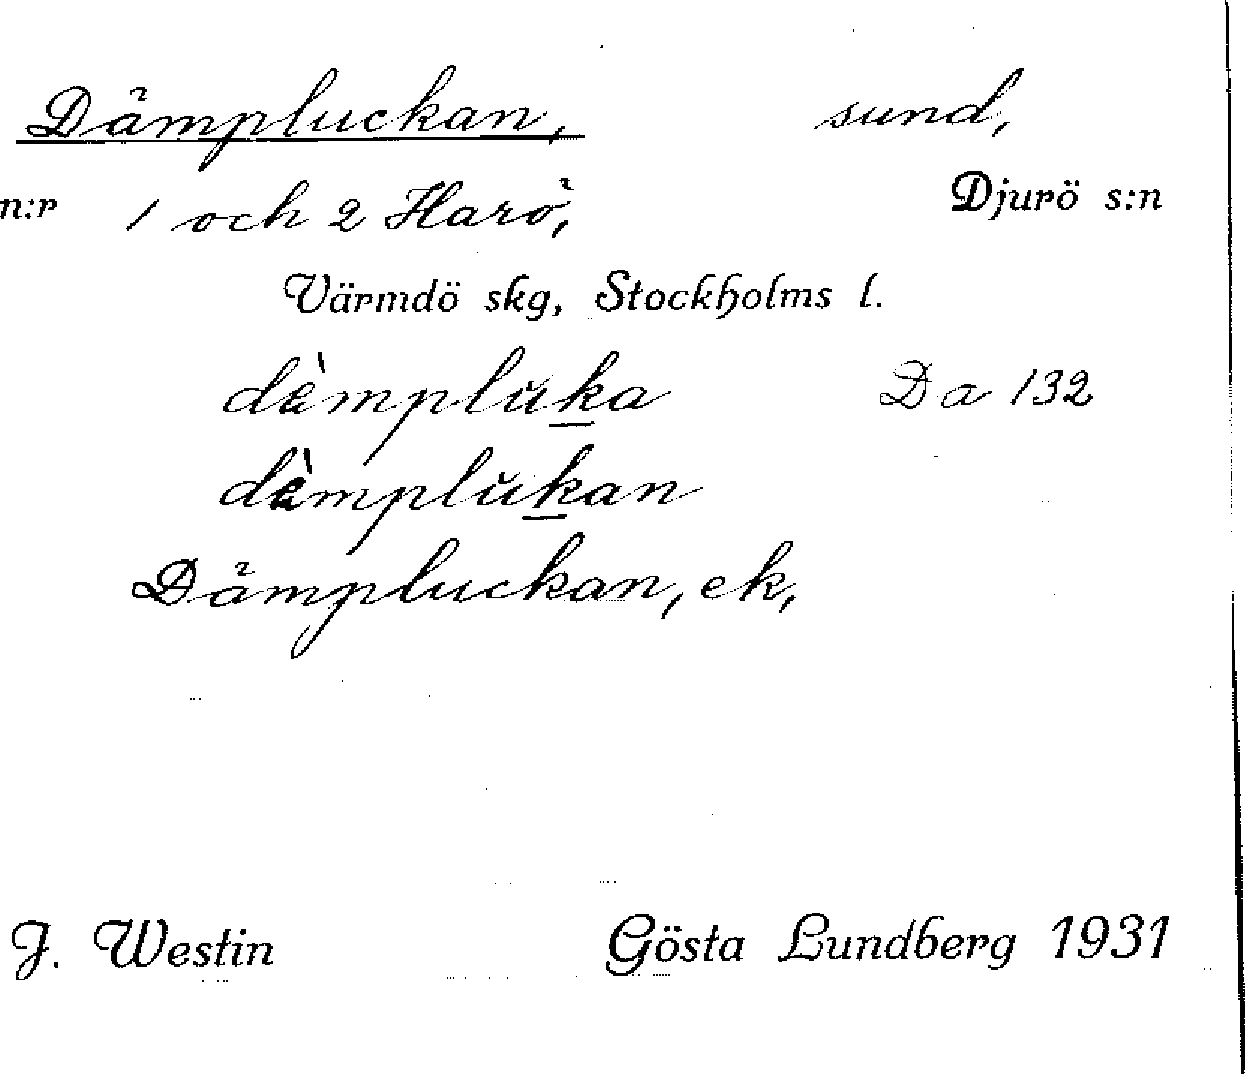 Dämpluckan, sund,
n:r 1 och 2 Harö, Djurö s:n
Värmdö skg, Stockholms l.
dèmplŭka Da 132
dèmplŭkan
Dämpluckan, ek,
J. Westin Gösta Lundberg 1931